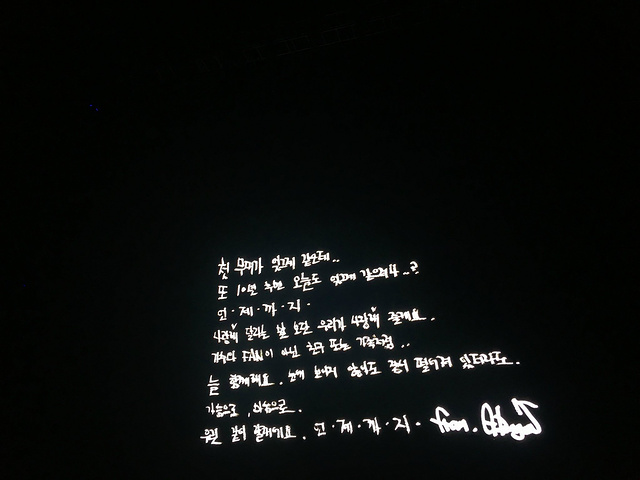 첫 무대가 엊그제 같은데..
또 10년 후엔 오늘도 엊그제 같으려나..?
언·제·까·지·
사랑해 달라는 말 보단 우리가 사랑해 줄게요..
FAN이 아닌 친구 또는 가족처럼..
늘 함께해요. 눈에 보이지 않아도 멀리 떨어져 있더라도..
가슴으로, 마음으로.
우린 같이 함께해요. 언·제·까·지· from.